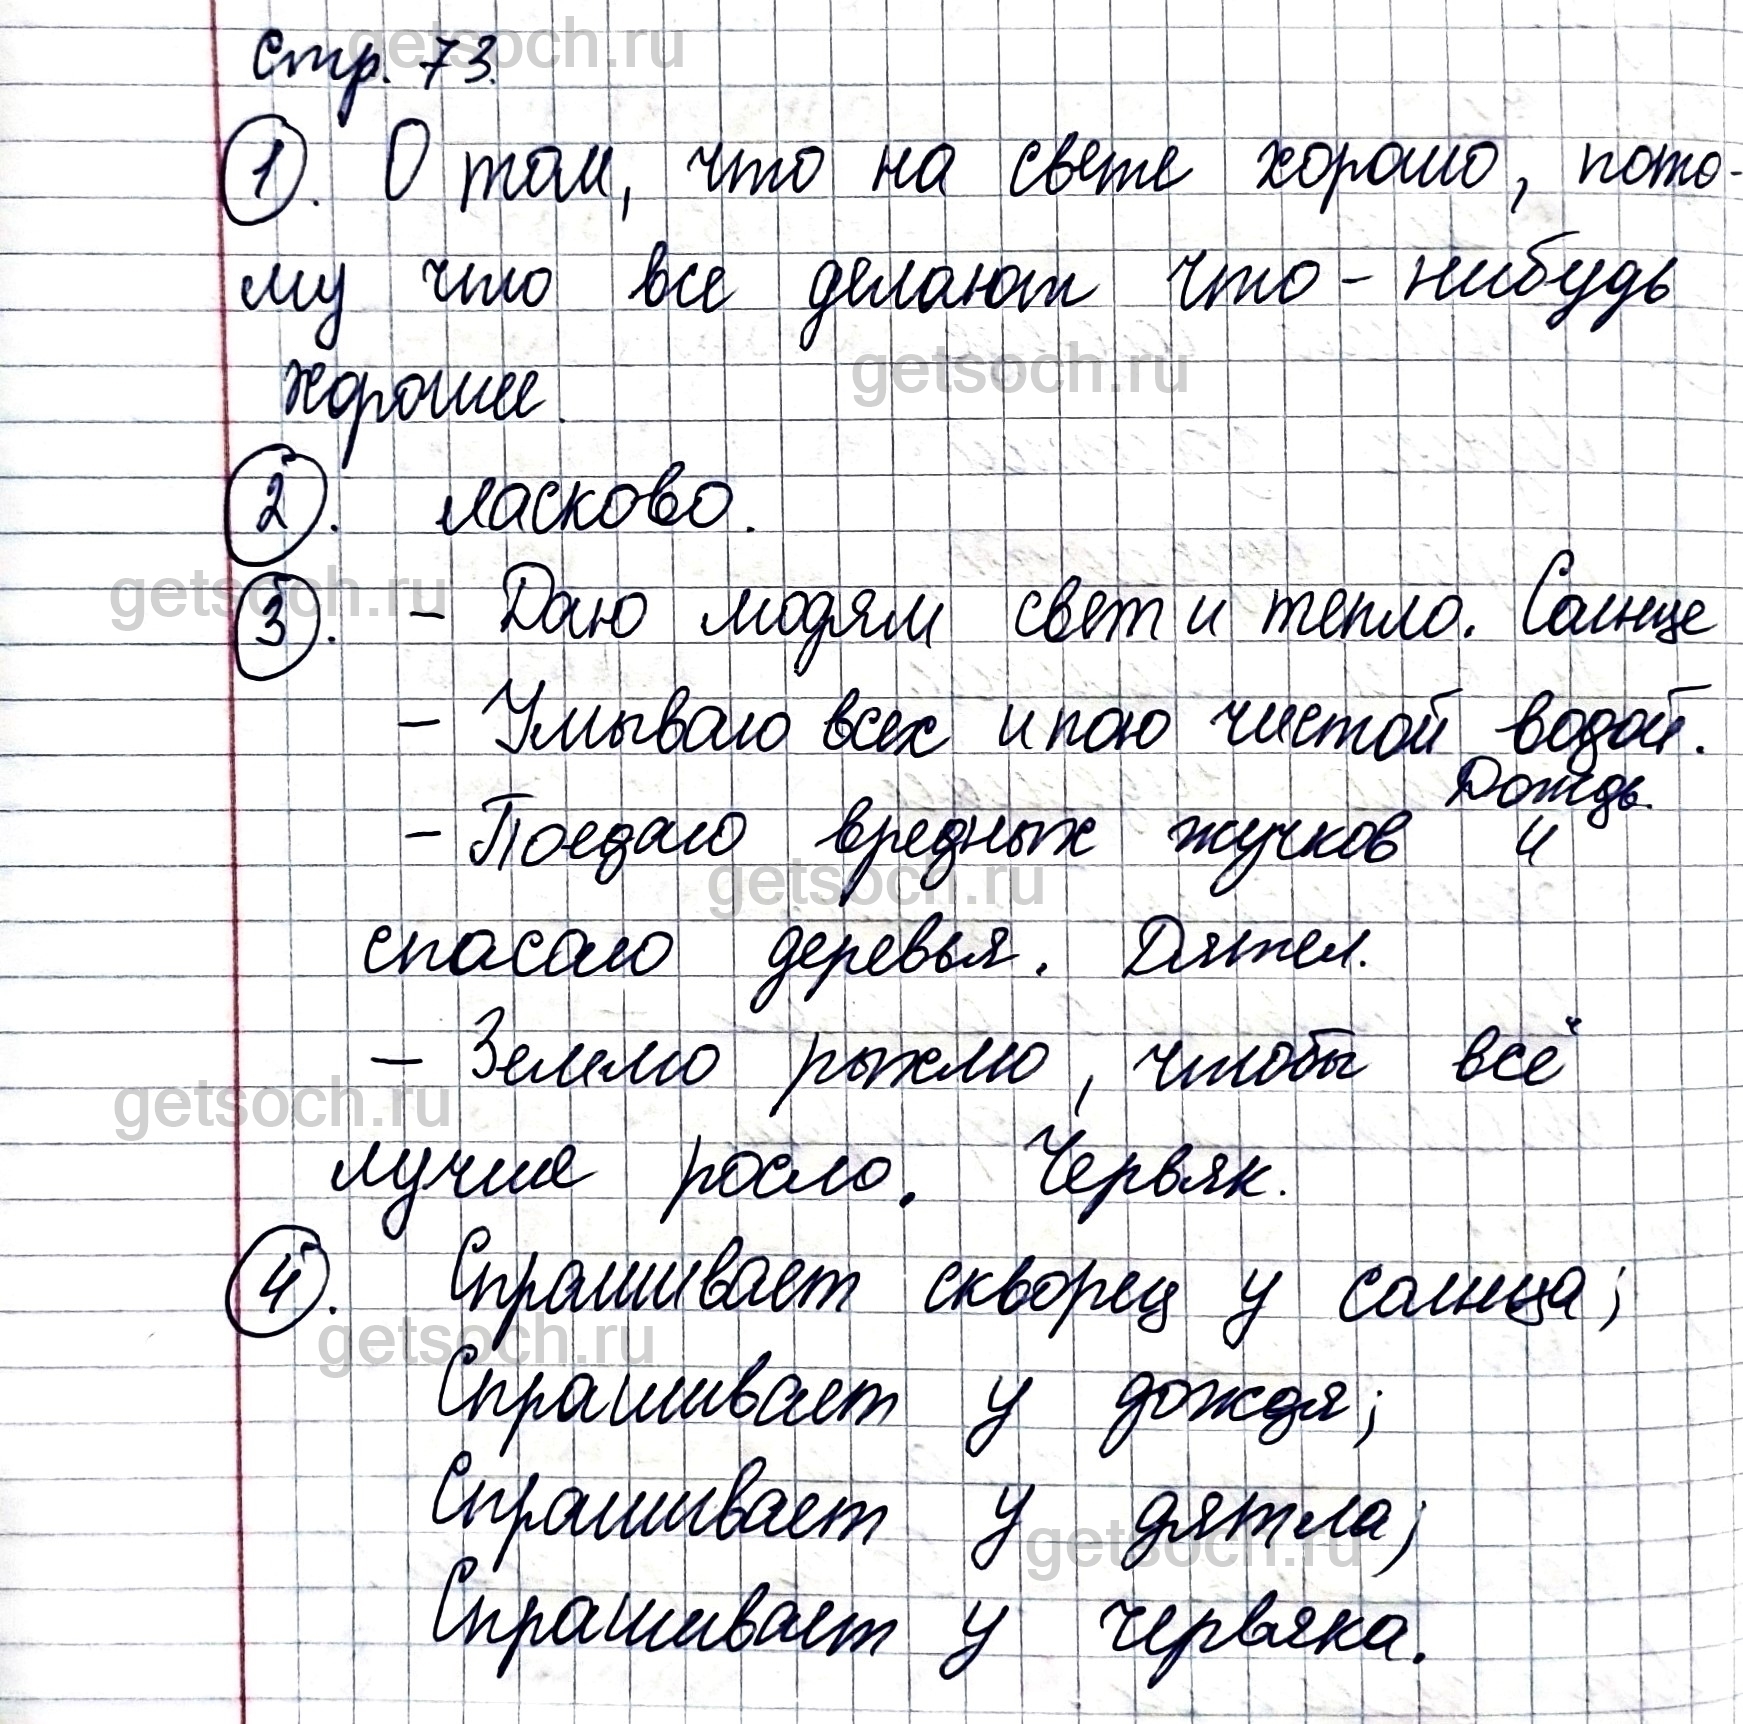 Стр. 73.
1. О том, что на свете хорошо, пото-
му что все делают что-нибудь
хорошее.
2. ласково.
3. - Даю людям свет и тепло. Солнце
- Умываю всех и пою чистой водой.
Дождь.
- Поедаю вредных жучков и
спасаю деревья. Дятел.
- Землю рыхлю, чтобы всё
лучше росло. Червяк.
4. Спрашивает скворец у солнца;
Спрашивает у дождя;
Спрашивает у дятла;
Спрашивает у червяка.
getsoch.ru
getsoch.ru
getsoch.ru
getsoch.ru
getsoch.ru
getsoch.ru
getsoch.ru